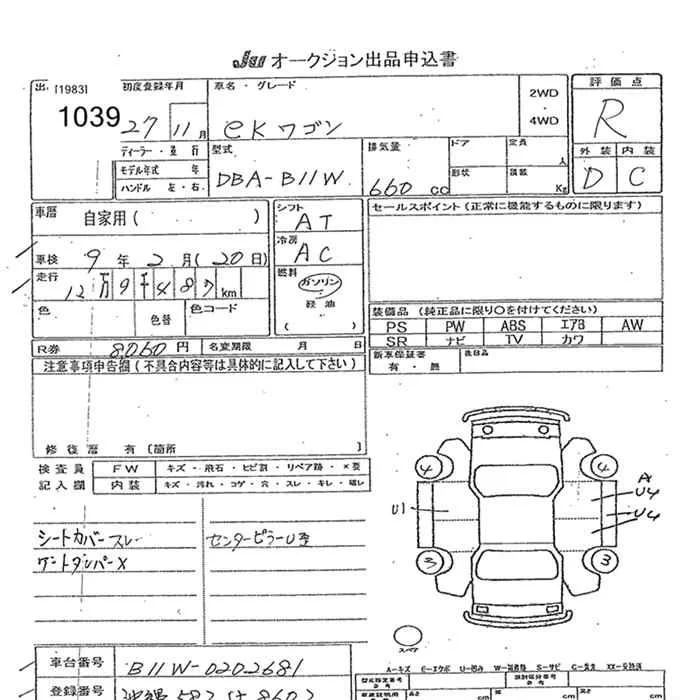 JU オークション出品申込書
出 [1983]
1039
初度登録年月
27 11 月
車名・グレード
eKワゴン
2WD
・
4WD
評価点
R
外装 内装
D C
ディーラー・並行
モデル年式 年
ハンドル 左・右
型式
DBA-B11W
排気量
660 cc
ドア
形状
定員 人
積載 Kg
車歴 自家用( )
車検 9年 2月(20日)
走行 12万9千487km
色 色替 色コード
シフト AT
冷房 AC
燃料 ガソリン
軽油
( )
セールスポイント(正常に機能するものに限ります)
装備品(純正品に限り○を付けてください)
PS PW ABS エアB AW
SR ナビ TV カワ
新車保証書 有・無
後日品
R券 8,060円 名変期限 月 日
注意事項申告欄(不具合内容等は具体的に記入して下さい)
修復歴 有〔箇所 〕
検査員 FW キズ・飛石・ヒビ割・リペア跡・×要
記入欄 内装 キズ・汚れ・コゲ・穴・スレ・キレ・破レ
シートカバースレ
ゲートダンパーX
センターピラーU歪
4 4
U1
A
U4
U4
3 3
スペア
A-キズ E-エクボ U-凹み W-補修跡 S-サビ C-腐食 XX-交換済
車台番号 B11W-0202681
登録番号
型式指定番号
類別区分番号
cm cm cm